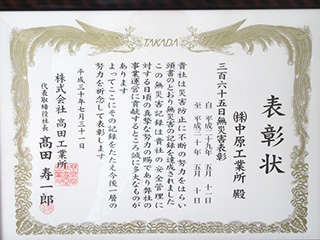 TAKADA
表彰状
㈱中原工業所 殿
三百六十五日無災害表彰
自 平成二十九年 五月 十一日
至 平成三十年 五月 十日
貴社は災害防止に不断の努力をはらい
頭書のとおり無災害の記録を達成されました
この無災害記録は貴社の安全管理に
対する日頃の真摯な努力の賜であり弊社の
事業運営に貢献するところ誠に多大なものが
あります
よってここにその記録をたたえ今後一層の
努力を祈念して表彰します
平成三十年七月三十一日
株式会社 高田工業所
代表取締役社長 髙田 寿一郎